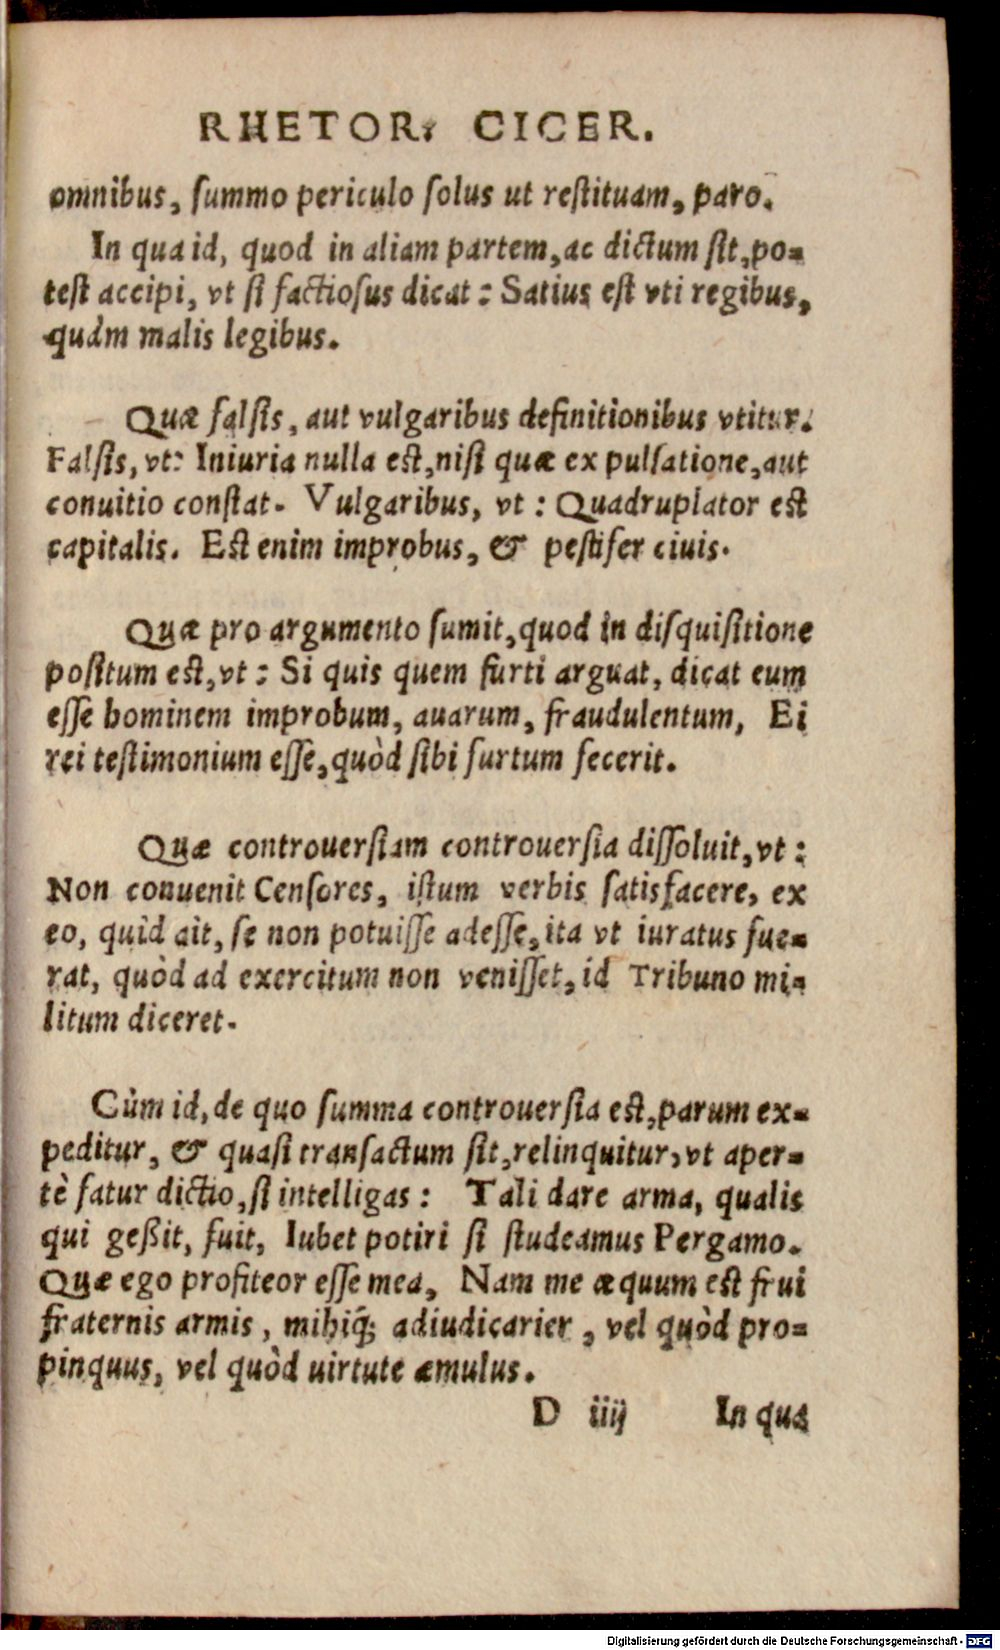 RHETOR. CICER.
omnibus, ſummo periculo ſolus ut reſtituam, paro.
In qua id, quod in aliam partem, ac dictum ſit, po-
teſt accipi, vt ſi factioſus dicat: Satius eſt vti regibus,
quàm malis legibus.
Quæ falſis, aut vulgaribus definitionibus vtitur.
Falſis, vt: Iniuria nulla eſt, niſi quæ ex pulſatione, aut
conuitio conſtat. Vulgaribus, vt: Quadruplator eſt
capitalis. Eſt enim improbus, & peſtifer ciuis.
Quæ pro argumento ſumit, quod in diſquiſitione
poſitum eſt, vt: Si quis quem furti arguat, dicat eum
eſſe hominem improbum, auarum, fraudulentum, Ei
rei teſtimonium eſſe, quòd ſibi furtum fecerit.
Quæ controuerſiam controuerſia diſſoluit, vt:
Non conuenit Cenſores, iſtum verbis ſatisfacere, ex
eo, quìd ait, ſe non potuiſſe adeſſe, ita vt iuratus fue-
rat, quòd ad exercitum non veniſſet, id Tribuno mi-
litum diceret.
Cùm id, de quo ſumma controuerſia eſt, parum ex-
peditur, & quaſi tranſactum ſit, relinquitur, vt aper-
tè fatur dictio, ſi intelligas: Tali dare arma, qualis
qui geßit, fuit, Iubet potiri ſi ſtudeamus Pergamo.
Quæ ego profiteor eſſe mea, Nam me æquum eſt frui
fraternis armis, mihiq́; adiudicarier, vel quòd pro-
pinquus, vel quòd uirtute æmulus.
D iiij In qua
Digitalisierung gefördert durch die Deutsche Forschungsgemeinschaft - DFG